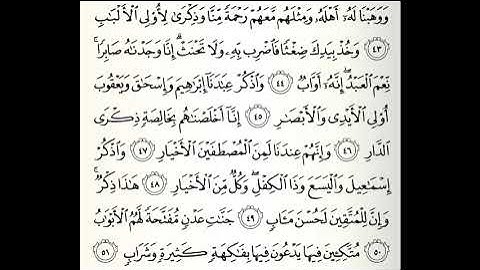 وَوَهَبْنَا لَهُۥٓ أَهْلَهُۥ وَمِثْلَهُم مَّعَهُمْ رَحْمَةً مِّنَّا وَذِكْرَىٰ لِأُو۟لِى ٱلْأَلْبَـٰبِ
٤٣ وَخُذْ بِيَدِكَ ضِغْثًا فَٱضْرِب بِّهِۦ وَلَا تَحْنَثْ ۗ إِنَّا وَجَدْنَـٰهُ صَابِرًا ۚ
نِّعْمَ ٱلْعَبْدُ ۖ إِنَّهُۥٓ أَوَّابٌ ٤٤ وَٱذْكُرْ عِبَـٰدَنَآ إِبْرَٰهِيمَ وَإِسْحَـٰقَ وَيَعْقُوبَ
أُو۟لِى ٱلْأَيْدِى وَٱلْأَبْصَـٰرِ ٤٥ إِنَّآ أَخْلَصْنَـٰهُم بِخَالِصَةٍ ذِكْرَى
ٱلدَّارِ ٤٦ وَإِنَّهُمْ عِندَنَا لَمِنَ ٱلْمُصْطَفَيْنَ ٱلْأَخْيَارِ ٤٧ وَٱذْكُرْ
إِسْمَـٰعِيلَ وَٱلْيَسَعَ وَذَا ٱلْكِفْلِ ۖ وَكُلٌّ مِّنَ ٱلْأَخْيَارِ ٤٨ هَـٰذَا ذِكْرٌ ۚ
وَإِنَّ لِلْمُتَّقِينَ لَحُسْنَ مَـَٔابٍ ٤٩ جَنَّـٰتِ عَدْنٍ مُّفَتَّحَةً لَّهُمُ ٱلْأَبْوَٰبُ
٥٠ مُتَّكِـِٔينَ فِيهَا يَدْعُونَ فِيهَا بِفَـٰكِهَةٍ كَثِيرَةٍ وَشَرَابٍ ٥١